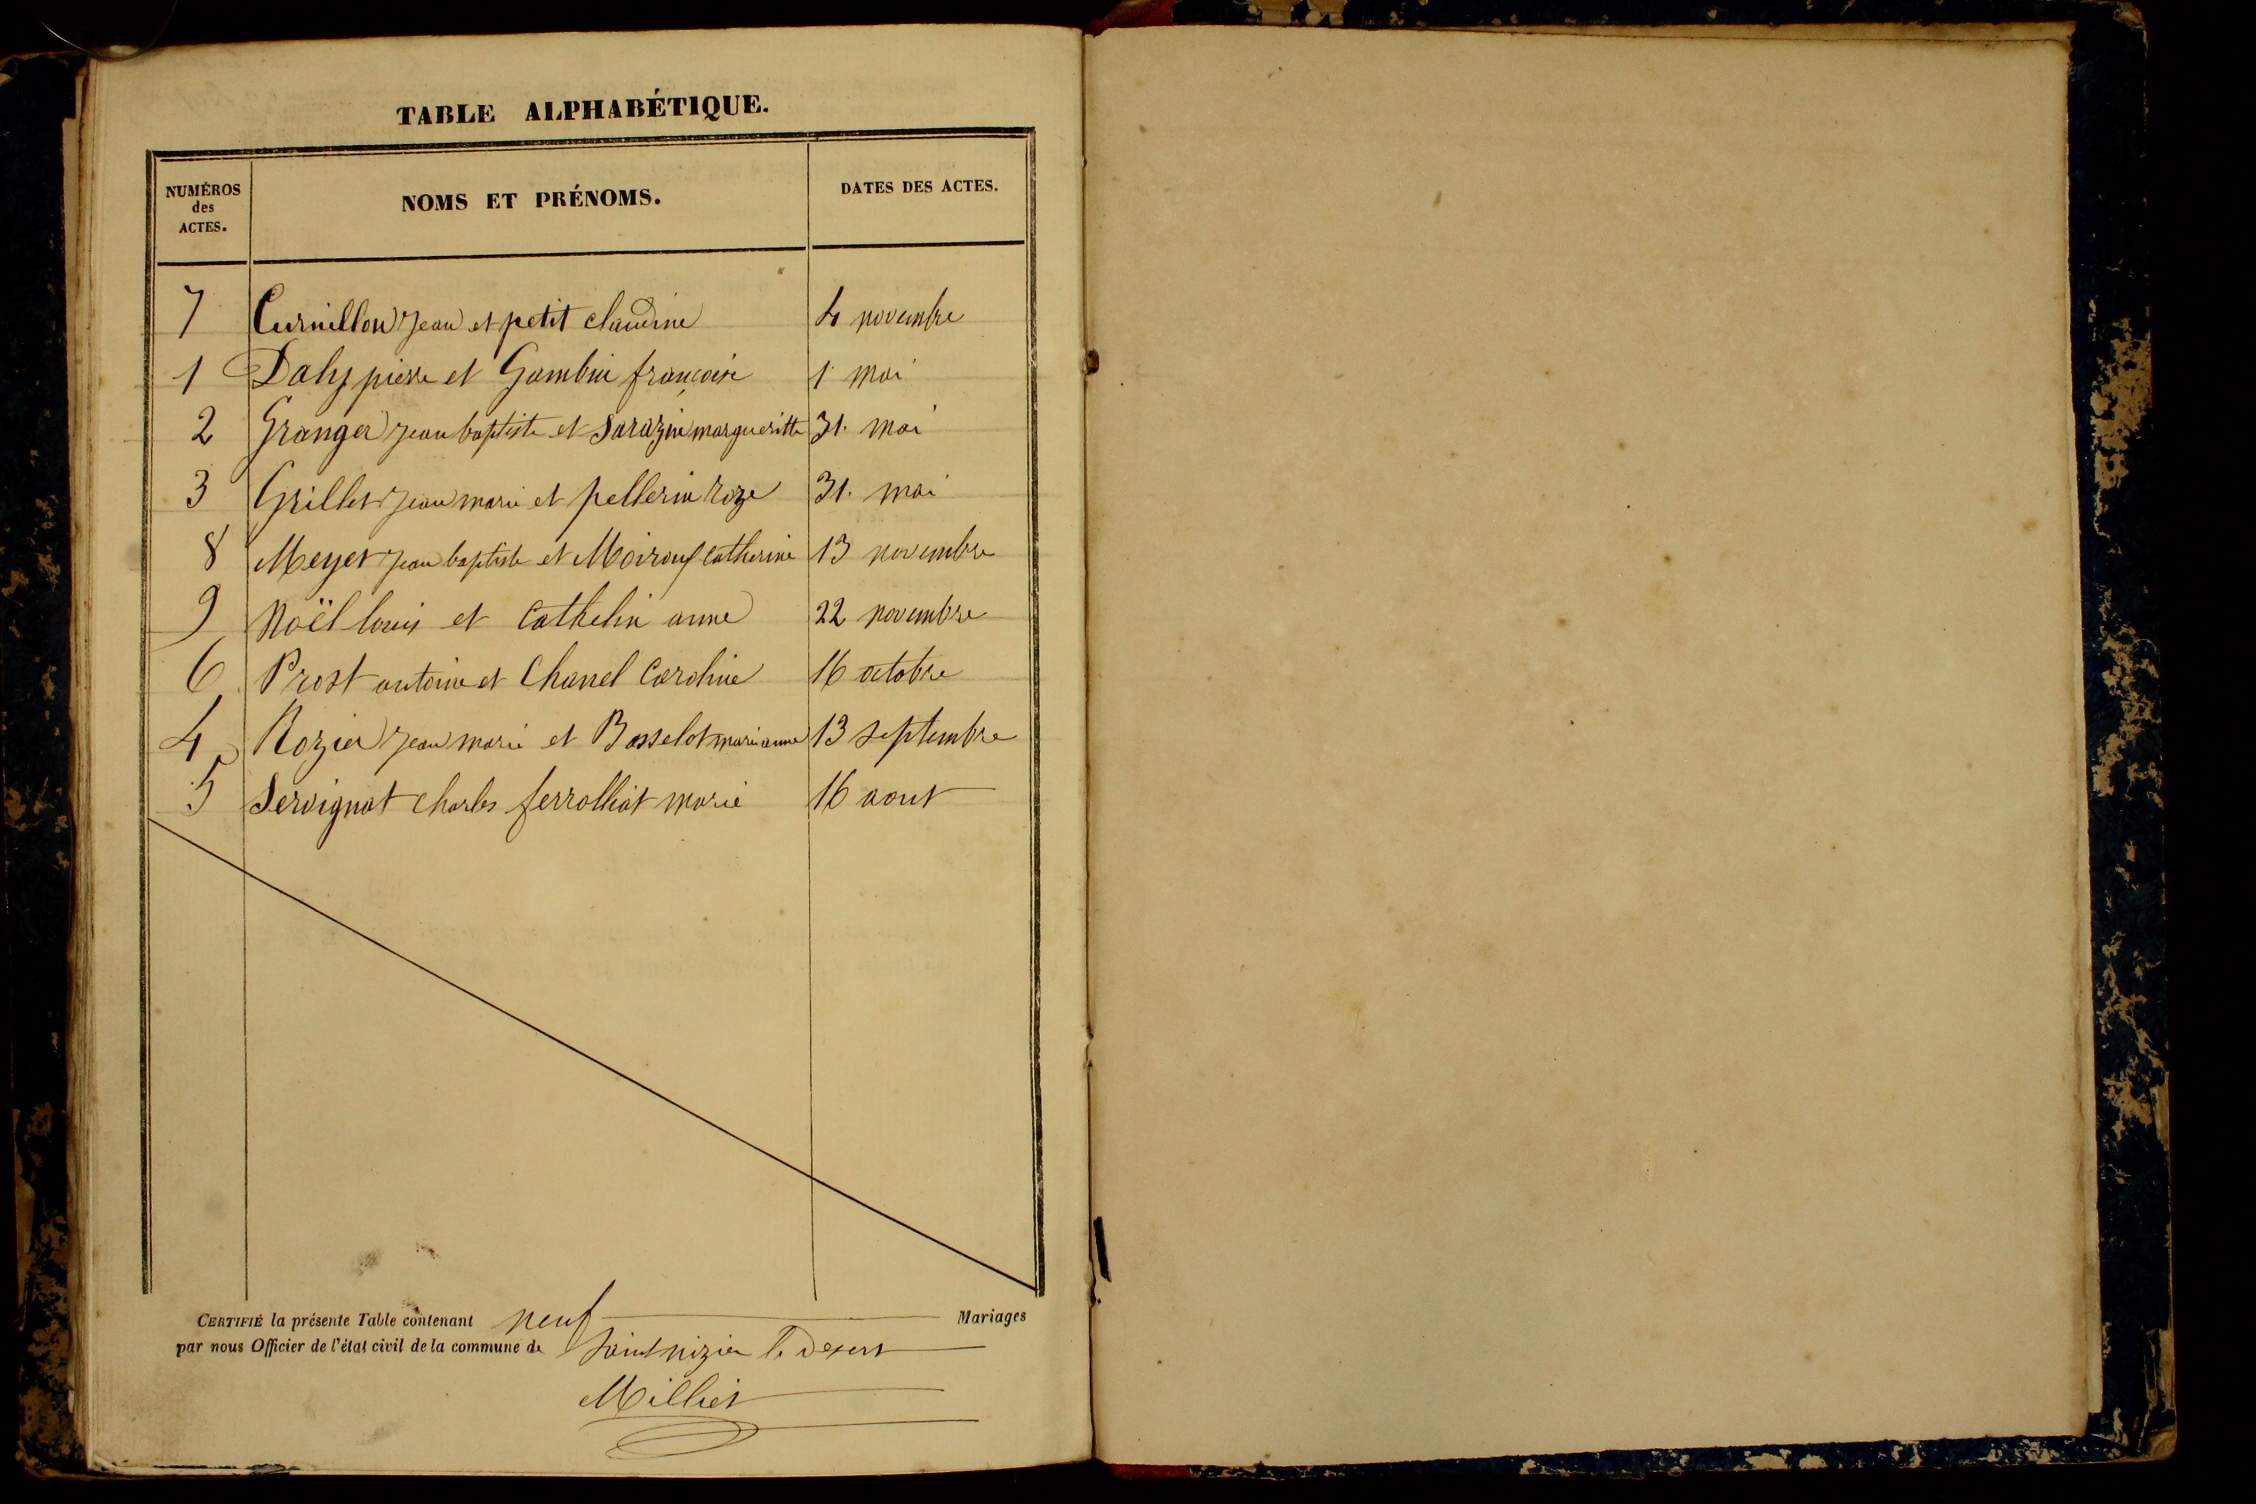 TABLE ALPHABÉTIQUE.
NUMÉROS des ACTES. NOMS ET PRÉNOMS. DATES DES ACTES.
7 Curnillon jean et petit claudine 4 novembre
1 Daly pierre et Gambin françoise 1 mai
2 Granger jean baptiste et Sarazin margueritte 31. mai
3 Grillet jean marie et pellerin roze 31. mai
8 Meyer jean baptiste et Moiroux catherine 13 novembre
9 Noël louis et Cathelin anne 22 novembre
6 Prost antoine et Chanel Caroline 16 octobre
4 Rozier jean marie et Bosselot marianne 13 septembre
5 Servignat Charles ferrolliat marie 16 aout
CERTIFIÉ la présente Table contenant neuf Mariages
par nous Officier de l'état civil de la commune de Saint nizier le Desert
Milliet